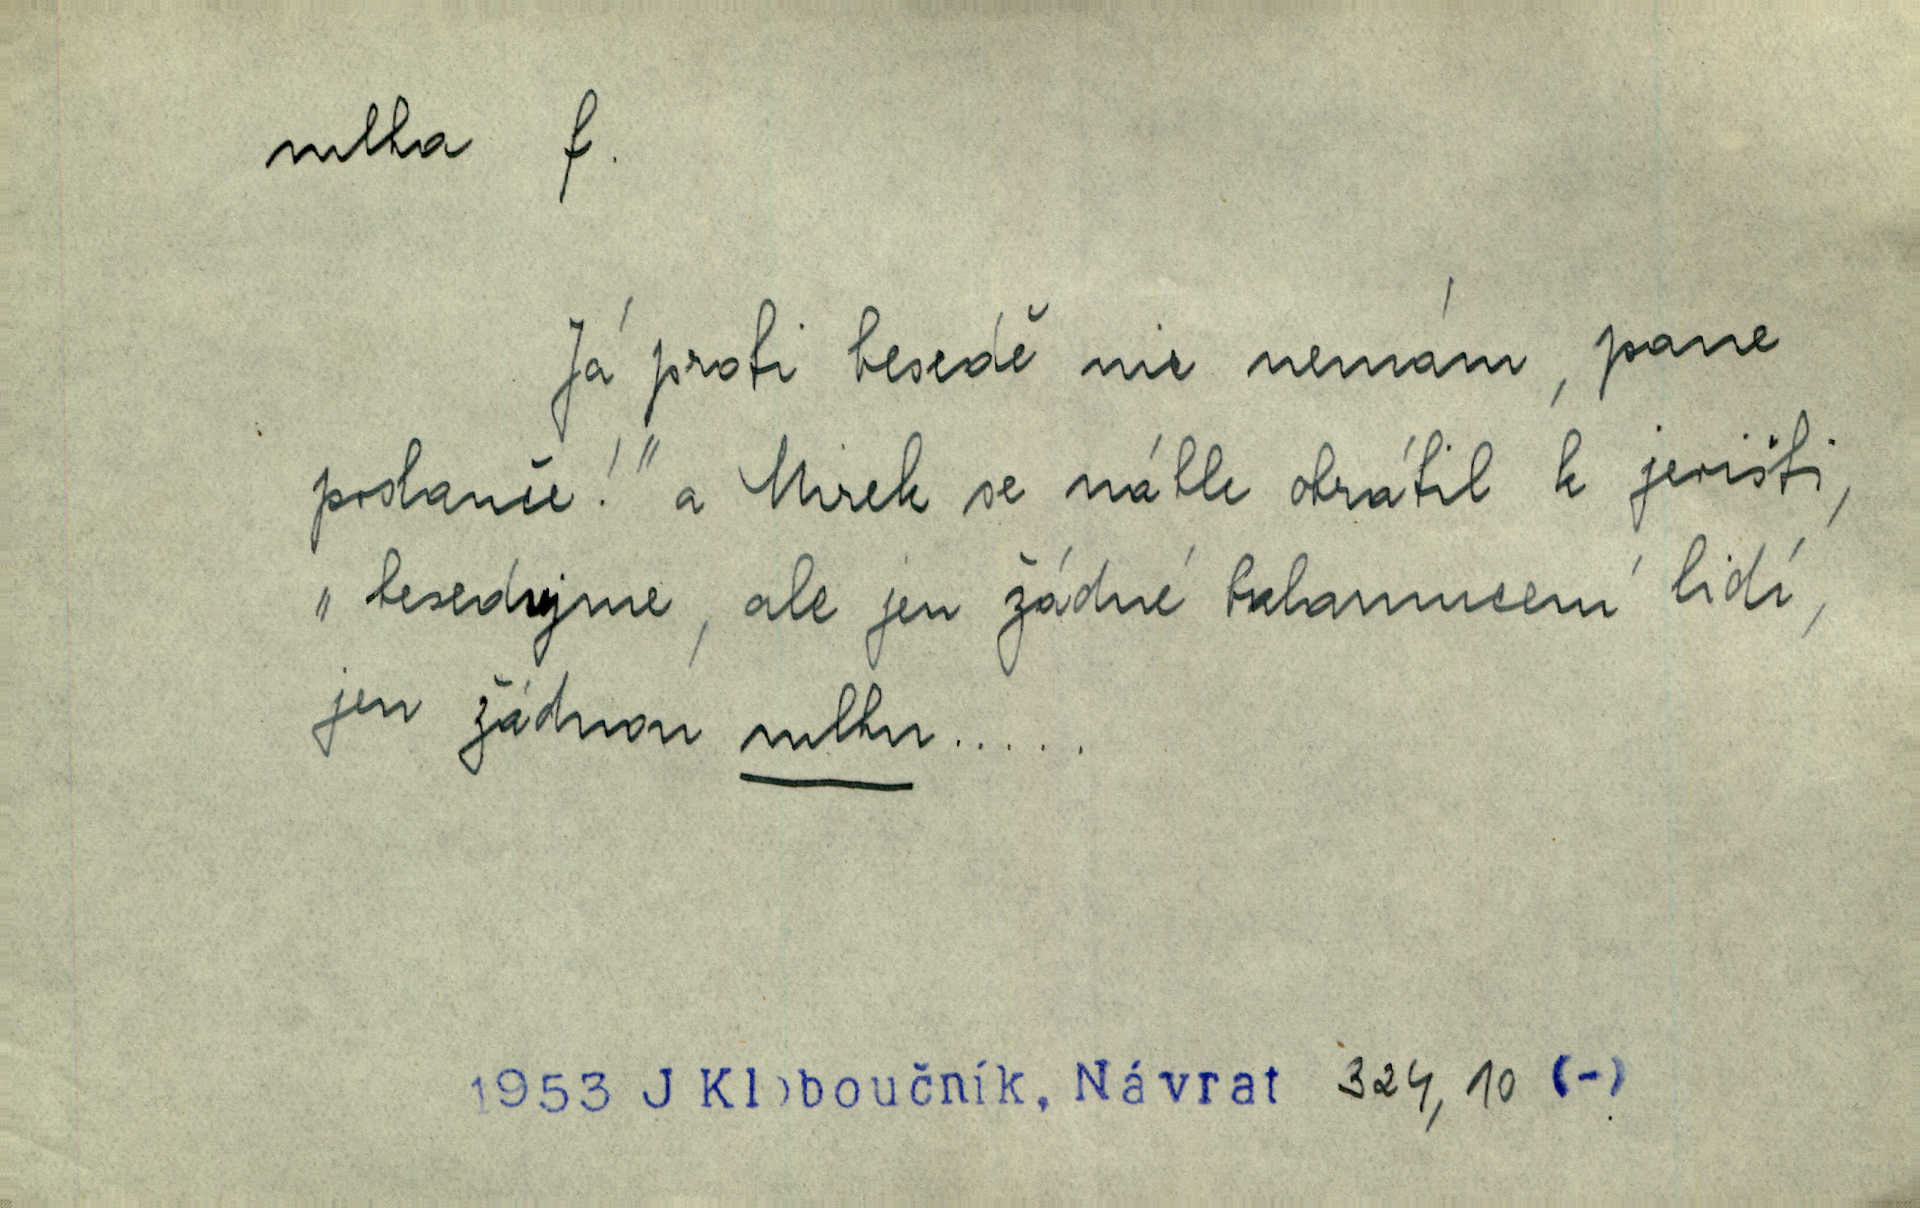 mlha f.
Já proti besedě nic nemám, pane
poslanče!" a Mirek se náhle obrátil k jevišti,
„besedujme, ale jen žádné balamucení lidí,
jen žádnou mlhu.....
1953 J Kloboučník, Návrat 324, 10 (-)